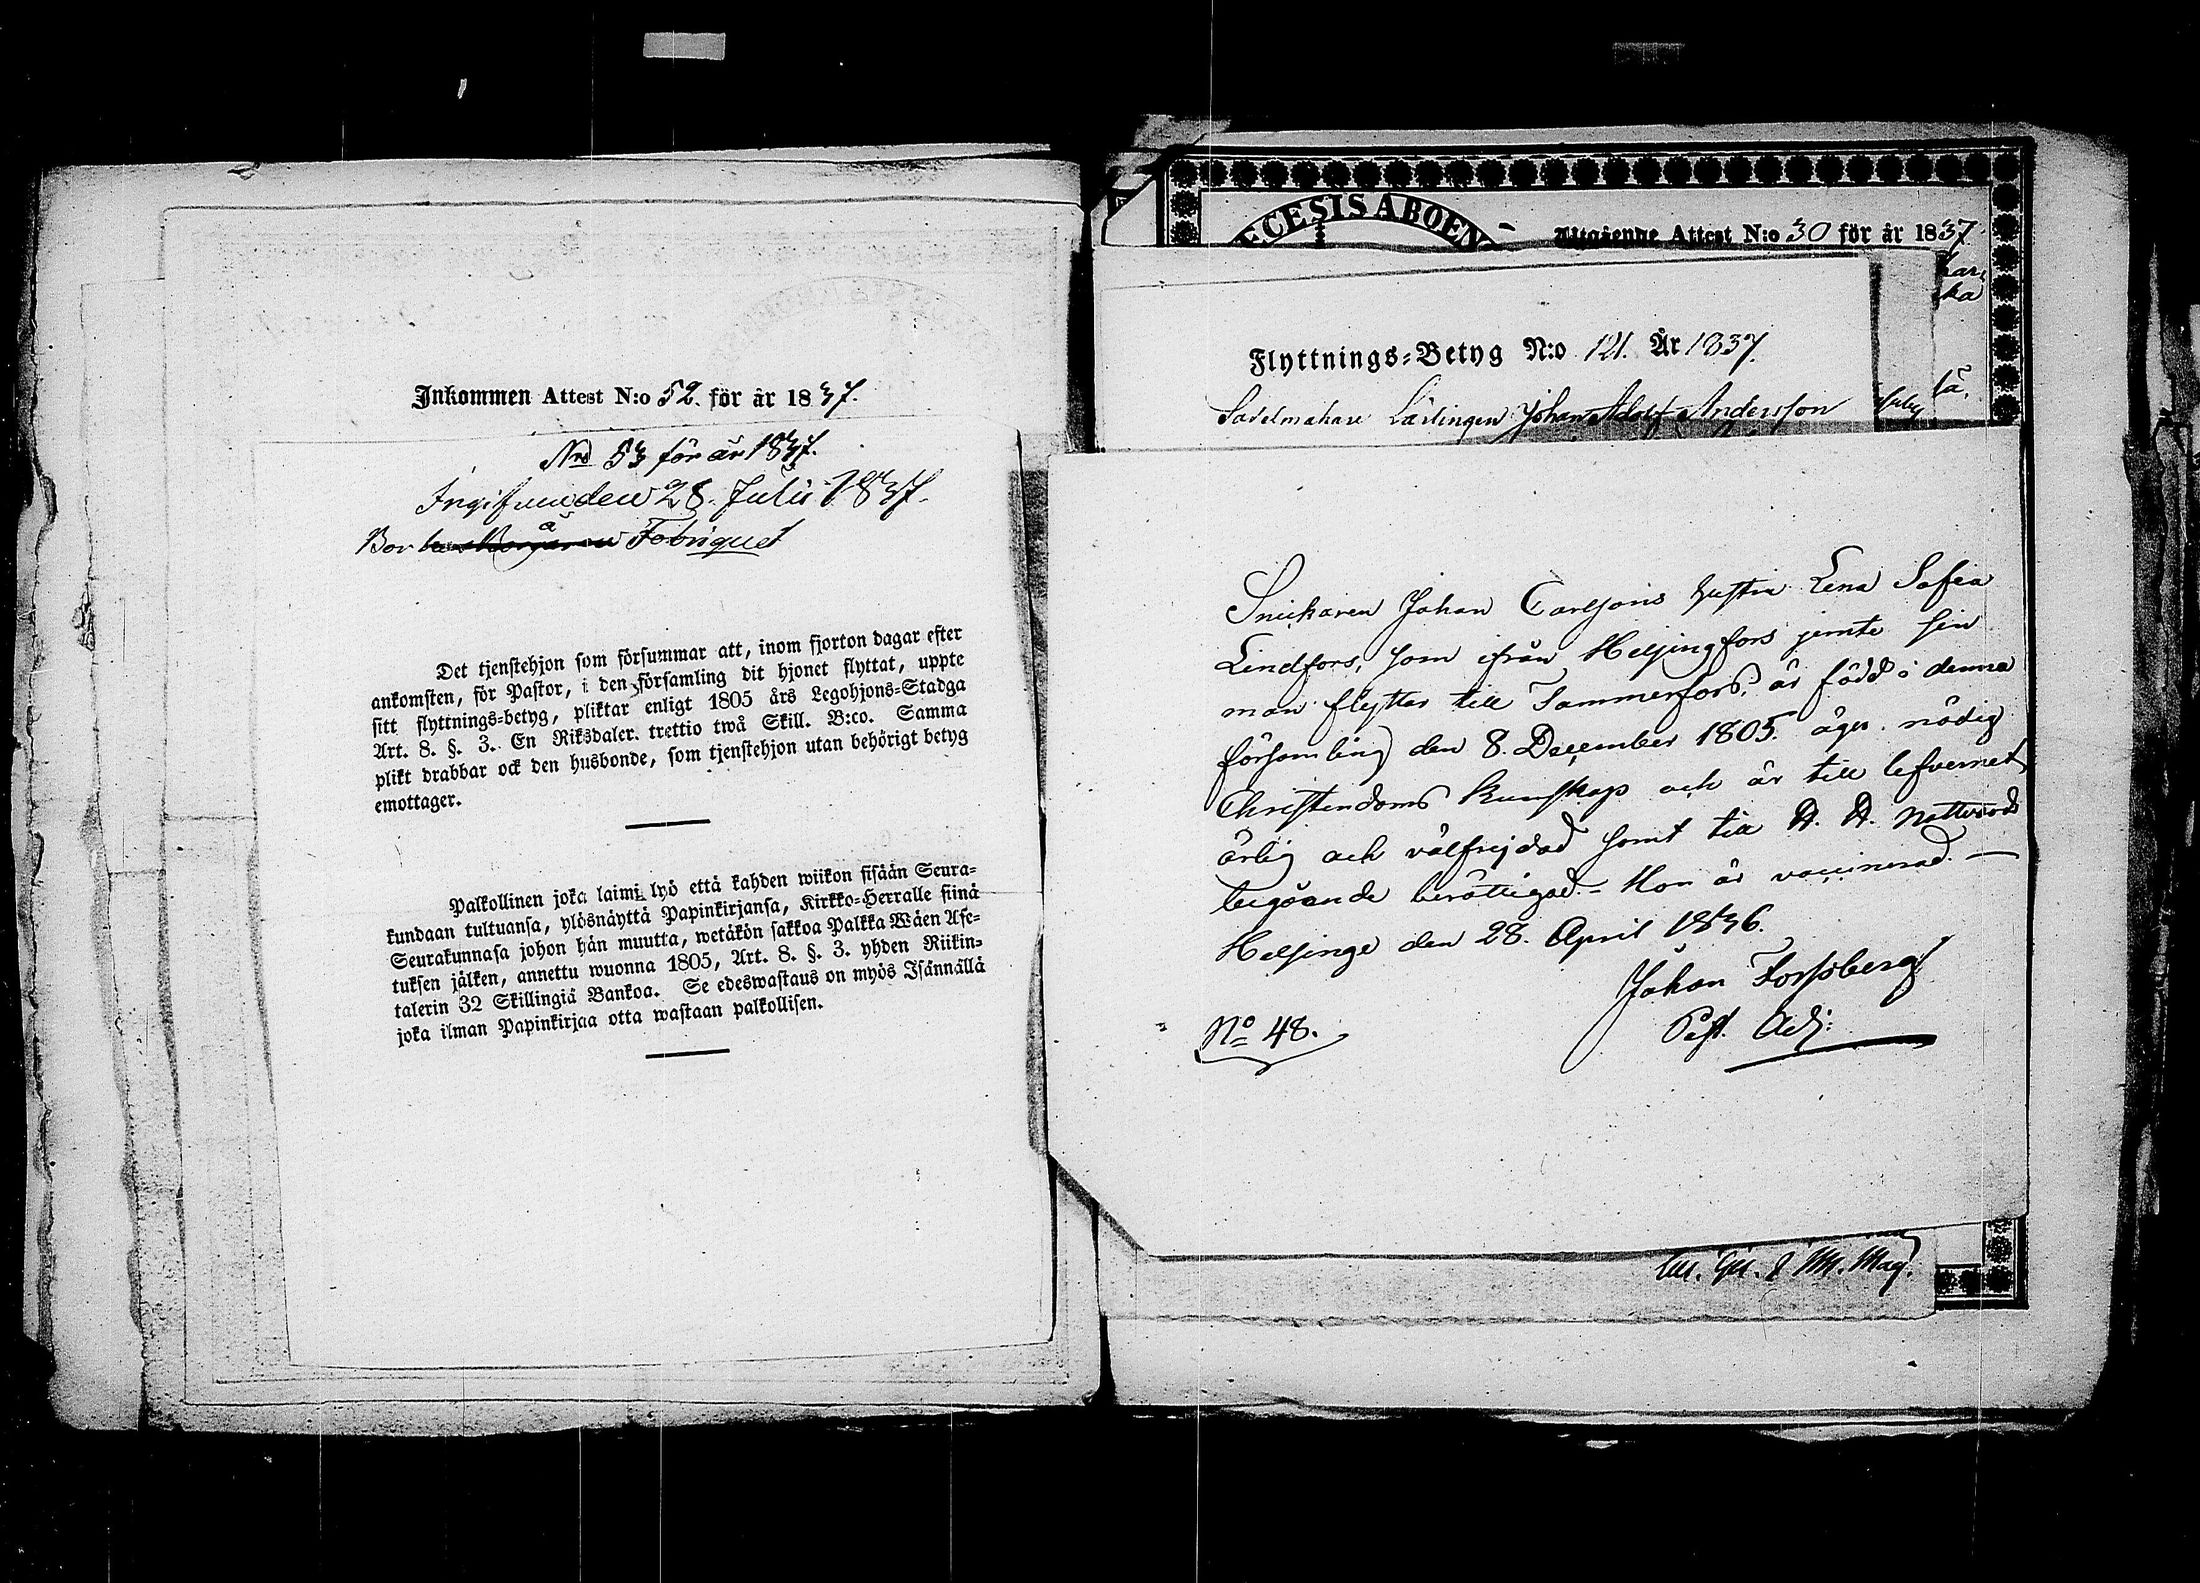 Inkommen Attest N:o 52. för år 1837.
Nro 53 för år 1837.
Ingifven den 28. Julii 1837.
å
Bor Fabriquet
Det tjenstehjon som försummar att, inom fjorton dagar efter
ankomsten, för Pastor, i den församling dit hjonet flyttat, uppte
sitt flyttnings-betyg, pliktar enligt 1805 års Legohjons-Stadga
Art. 8. §. 3. En Riksdaler. trettio twå Skill. B:co. Samma
plikt drabbar ock den husbonde, som tjenstehjon utan behörigt betyg
emottager.
Palkollinen joka laimi lyö että kahden wiikon sisään Seura-
kundaan tultuansa, ylösnäyttä Papinkirjansa, Kirkko-Herralle siinä
Seurakunnasa johon hän muutta, wetäkön sakkoa Palkka Wäen Ase-
tuksen jälken, annettu wuonna 1805, Art. 8. §. 3. yhden Riikin-
talerin 32 Skillingiä Bankoa. Se edeswastaus on myös Isännällä
joka ilman Papinkirjaa otta wastaan palkollisen.
ECESIS ABOEN
Utgående Attest N:o 30 för år 1837.
Flyttnings-Betyg N:o 121. År 1837.
Sadelmakare Lärlingen Johan Adolf Andersson
Snickaren Johan Carlsons hustru Lena Sofia
Lindfors, som ifrån Helsingfors jemte sin
man flyttar till Tammerfors, är född i denna
församling den 8. December 1805. äger nödig
Christendoms kunskap och är till lefvernet
ärlig och välfrejdad samt till H. H. Nattvards
begående berättigad. - Hon är vaccinerad. -
Helsinge den 28. April 1836.
Johan Forssberg
Past. Adj:
No 48.